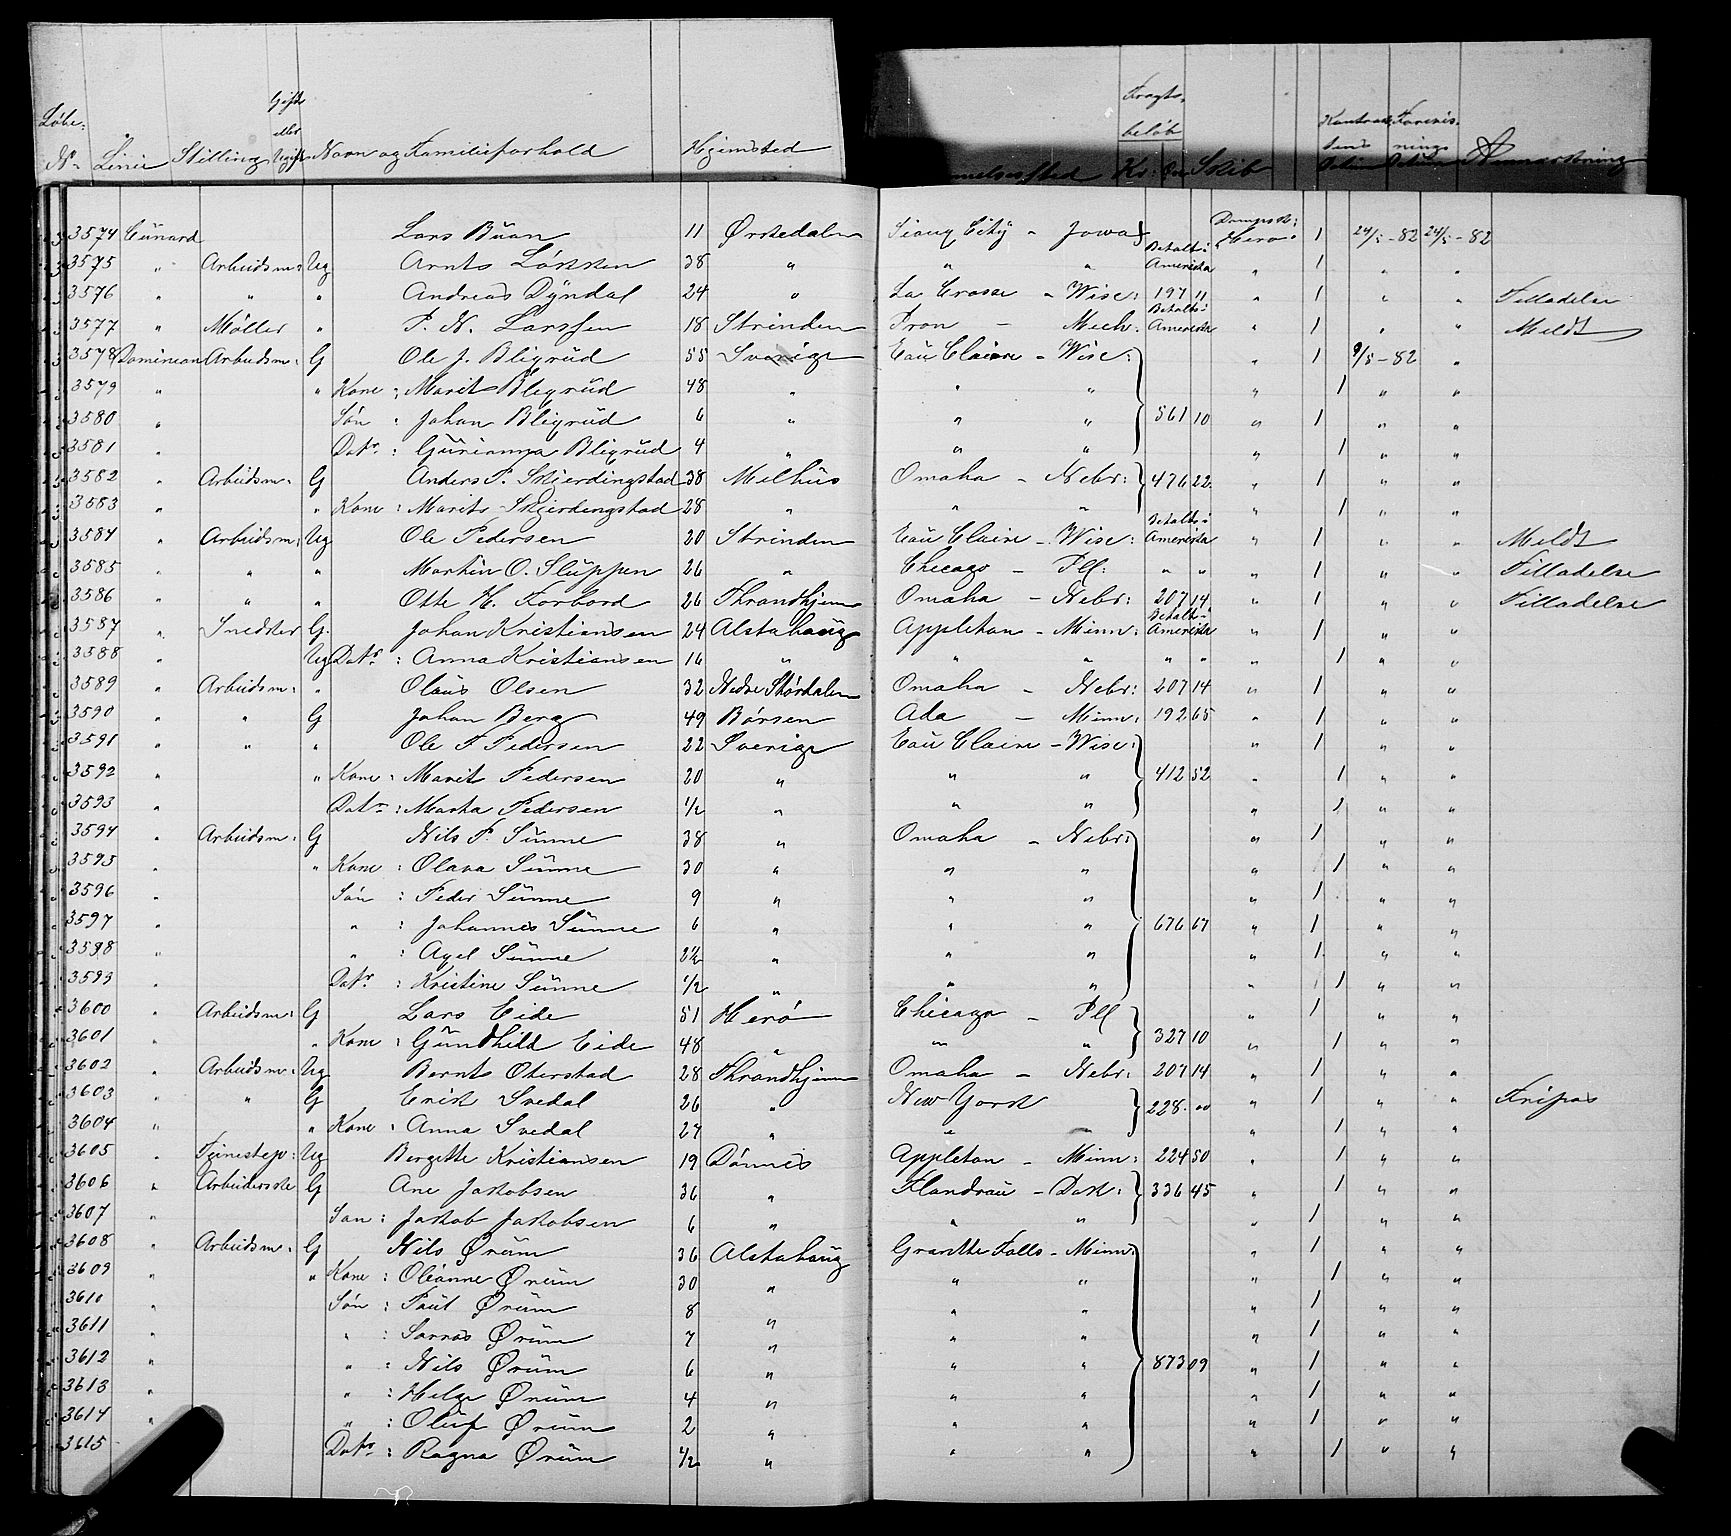 Løbe: Gift Fragts-
eller beløb Kontrak- Forevis-
No. Linie Stilling Ugift Navn og Familieforhold Hjemsted melsessted Kr: Øre Skib Datum Datum Anmærkning
3574 Cunard Lars Buan 11 Ørkedalen Sioux City - Jowa Dampsk: Hero 1 24/5-82 24/5-82
3575 " Arbeidsm: Ug Arnt Løkken 38 " " " Betalt i Amerika " 1 " "
3576 " " " Andreas Dyndal 24 " La Crosse - Wisc: 197 11 " 1 " " Tilladelse
3577 " Møller " P. N. Larssen 18 Strinden Iron - Mich. Betalt i Amerika " 1 " " Meldt
3578 Dominion Arbeidsm: G Ole J. Bligrud 55 Sverige Eau Claire - Wisc: " 1 9/5-82 "
3579 " " Kone: Marit Bligrud 48 " " " " 1 " "
3580 " Søn: Johan Bligrud 6 " " " 561 10 " 1 " "
3581 " Datr: Gurianna Bligrud 4 " " " " 1 " "
3582 " Arbeidsm: G Anders P. Skjerdingstad 38 Melhus Omaha - Nebr: 476 22 " 1 " "
3583 " " Kone: Marit Skjerdingstad 28 " " " " 1 " "
3584 " Arbeidsm: Ug Ole Pedersen 20 Strinden Eau Claire - Wisc: Betalt i Amerika " 1 " " Meldt
3585 " " " Martin O. Sluppen 26 " Chicago - Ill: " " " 1 " " Tilladelse
3586 " " " Otte H. Forbord 26 Thrandhjem Omaha - Nebr: 207 14 " 1 " " Tilladelse
3587 " Snedker G. Johan Kristiansen 24 Alstahaug Appleton - Minn: Betalt i Amerika " 1 " "
3588 " Ug Datr: Anna Kristiansen 16 " " " " " " 1 " "
3589 " Arbeidsm: " Olaus Olsen 32 Nedre Stördalen Omaha - Nebr: 207 14 " 1 " "
3590 " " G Johan Berg 49 Børsen Ada - Minn: 192 65 " 1 " "
3591 " " " Ole P. Pedersen 22 Sverige Eau Claire - Wisc: " 1 " "
3592 " " Kone: Marit Pedersen 20 " " " 412 52 " 1 " "
3593 " Datr: Marta Pedersen 1/2 " " " " 1 " "
3594 " Arbeidsm: G Nils P. Sunne 38 " Omaha - Nebr: " 1 " "
3595 " " Kone: Olava Sunne 30 " " " " 1 " "
3596 " Søn: Peder Sunne 9 " " " " 1 " "
3597 " " : Johannes Sunne 6 " " " 676 67 " 1 " "
3598 " " : Axel Sunne 2½ " " " " 1 " "
3599 " Datr: Kristine Sunne 1/2 " " " " 1 " "
3600 " Arbeidsm: G Lars Eide 51 Herø Chicago - Ill " 1 " "
3601 " " Kone: Gundhild Eide 48 " " " 327 10 " 1 " "
3602 " Arbeidsm: Ug Bernt Okerstad 28 Thrandhjem Omaha - Nebr: 207 14 " 1 " "
3603 " " G Erik Svedal 26 " New York 228 00 " 1 " " Fripas
3604 " " Kone: Anna Svedal 27 " " " 1 " "
3605 " Tjenestep: Ug Bergitte Kristiansen 19 Dønnes Appleton - Minn: 224 50 " 1 " "
3606 " Arbeiderske G Ane Jakobsen 36 " Flandrau - Dak: 336 45 " 1 " "
3607 " Søn: Jakob Jakobsen 6 " " " " 1 " "
3608 " Arbeidsm: G Nils Ørum 36 Alstahaug Granitte Falls - Minn: " 1 " "
3609 " " Kone: Oleanne Ørum 30 " " " " 1 " "
3610 " Søn: Paul Ørum 8 " " " " 1 " "
3611 " " : Ørum 7 " " " " 1 " "
3612 " " : Nils Ørum 6 " " " 873 09 " 1 " "
3613 " " : Helge Ørum 4 " " " " 1 " "
3614 " " : Oluf Ørum 2 " " " " 1 " "
3615 Datr: Ragna Ørum 1/2 " " " " 1 " "